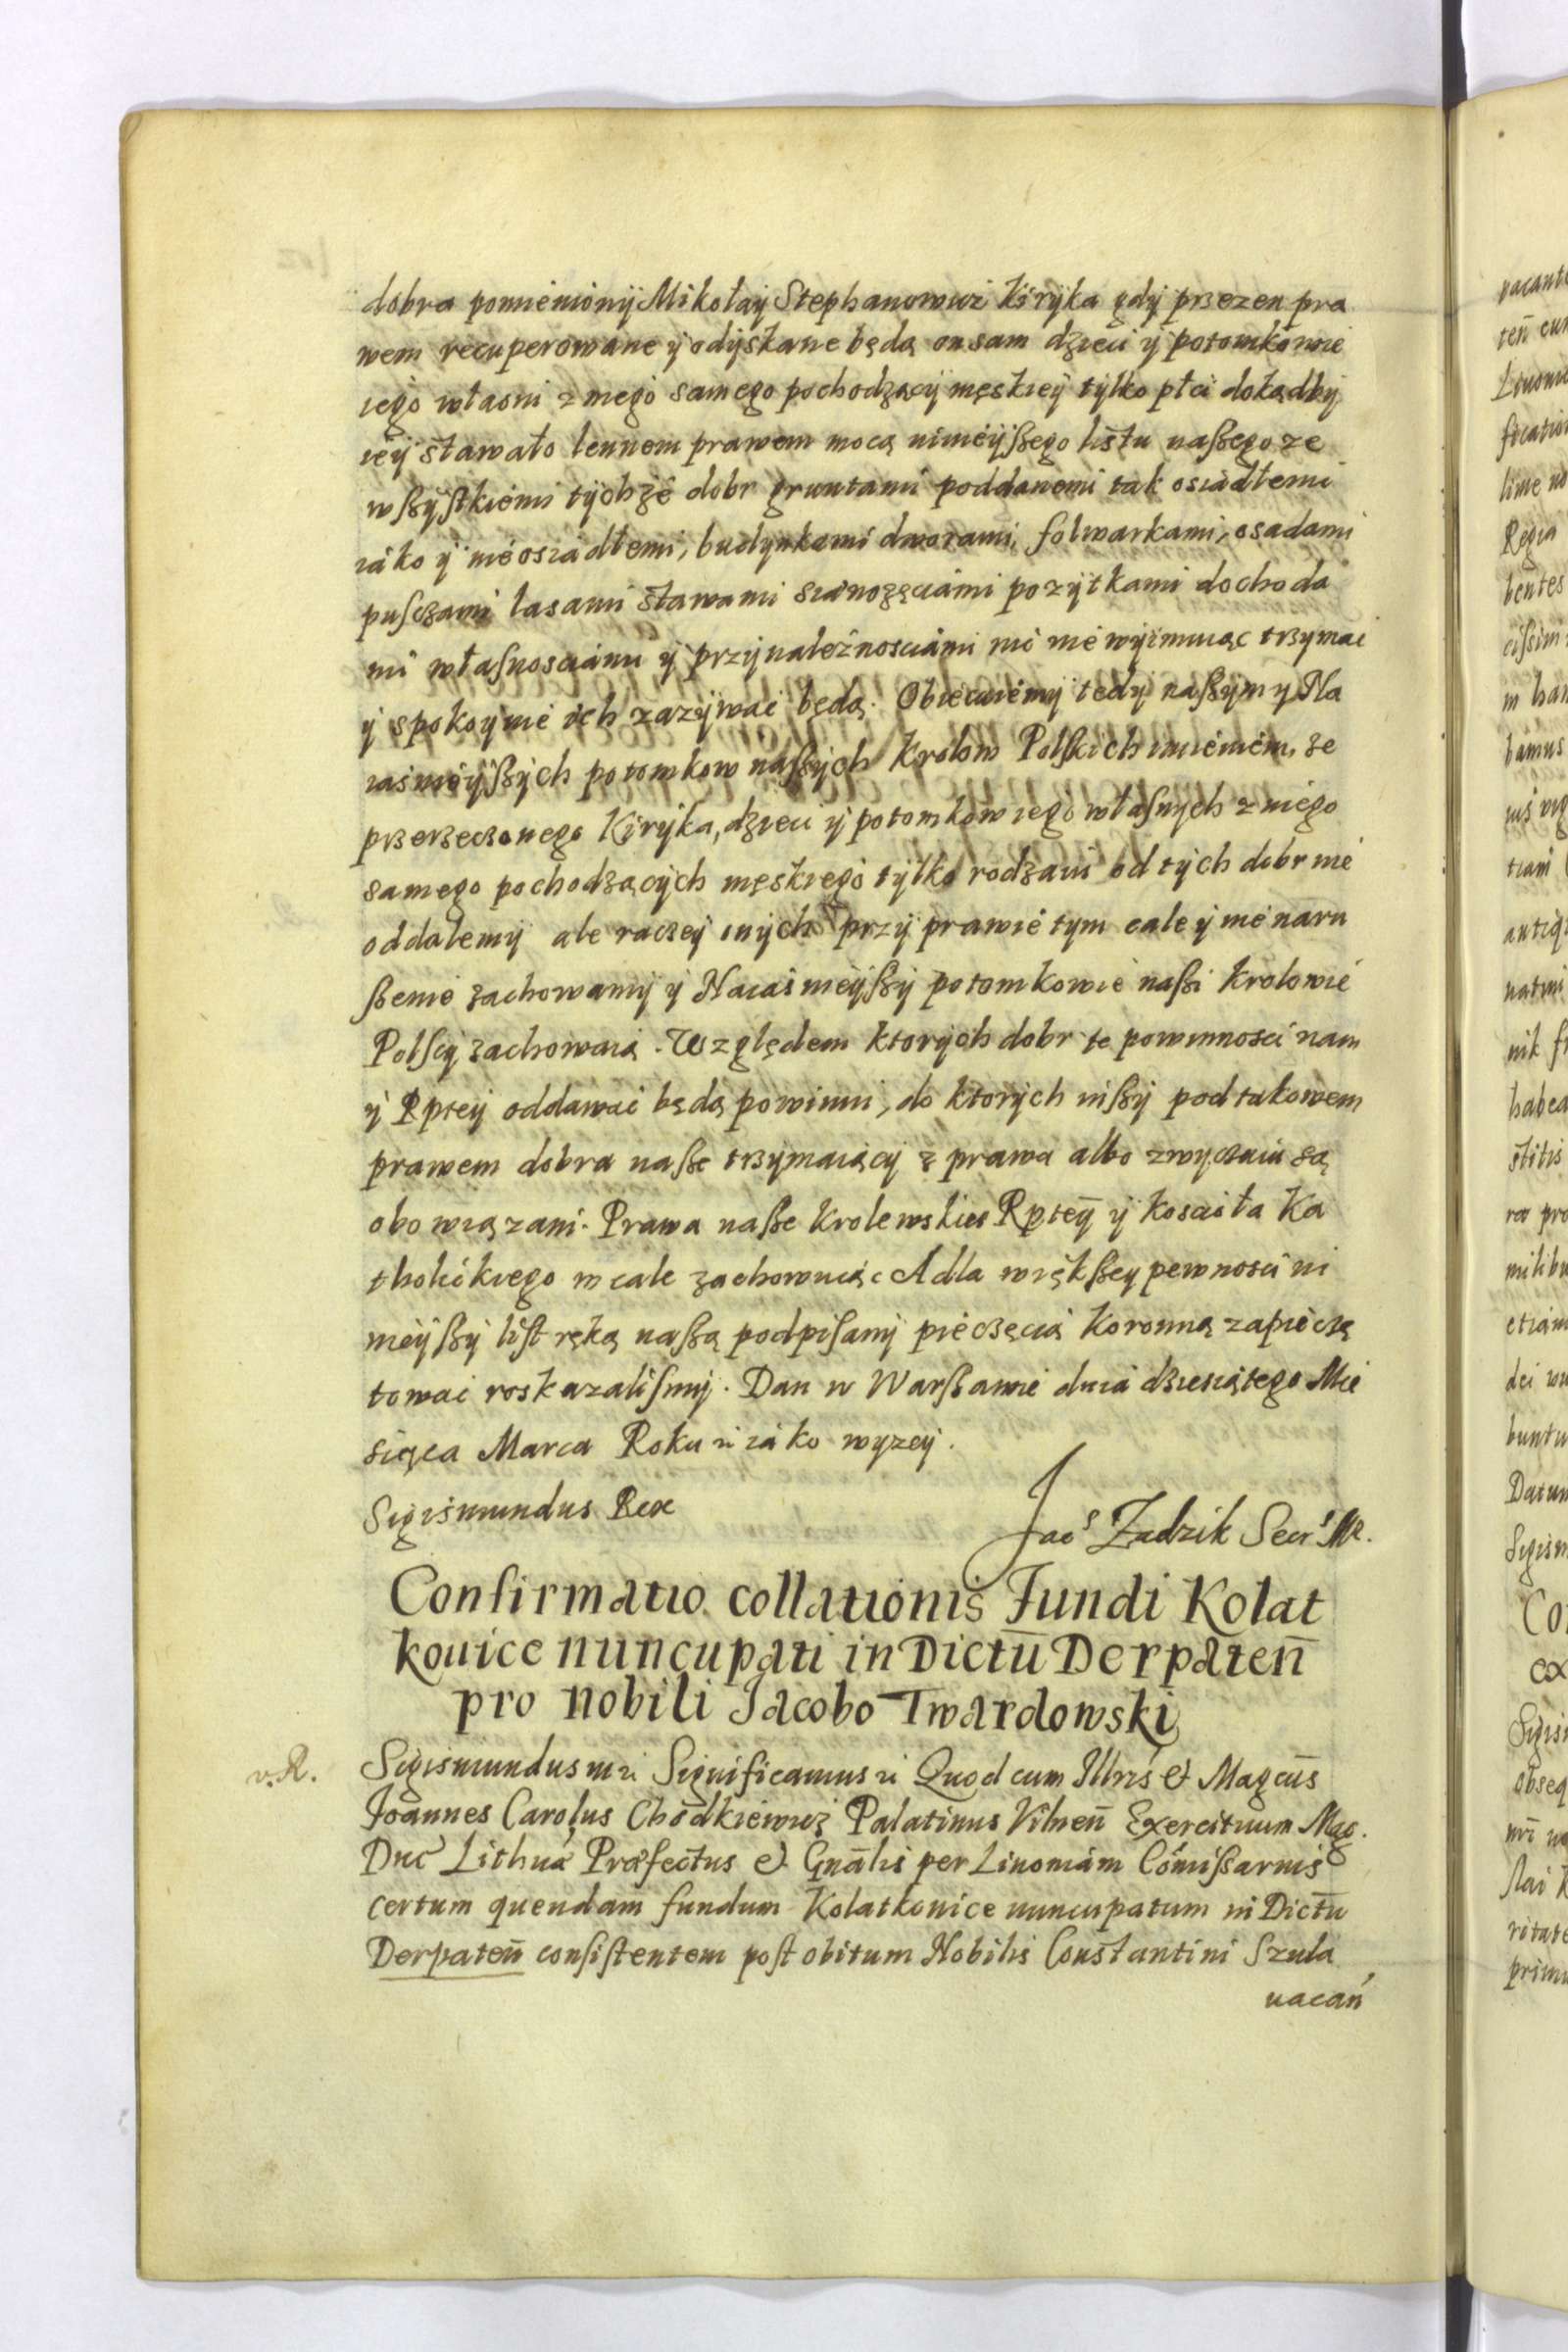 dobra pomieniony Mikołay Stephanowicz Kiryka gdy przezen pra
wem recuperowane y odyskane będą on sam dzieci y potomkowie
iego własni z niego samego pochodzący męskiey tylko płci dokądby
iey stawało lennem prawem mocą nimieyßego listu naßego ze
wßystkiemi tychże dobr gruntami poddanemi tak osiadłemi
iako y nieosiadłemi, budynkami dworami, folwarkami, osadami
puſczami lasami stawami sianozęciami pozytkami dochoda
mi właſnosciami y przynależnosciami nic nie wyimuiąc trzymac
y spokoynie ich zazywac będą. Obiecuiemy tedy naßym y Na
iasnieyßych potomkow naßych Krolow Polſkich imieniem, ze
przerzeczonego Kiryka, dzieci y potomkow iego właſnych z niego
samego pochodzących męskiego tylko rodzaiu od tych dobr nie
oddalemy ale raczey onych przy prawie tym cale y nienaru
ßenie zachowamy y Naiasnieyßy potomkowie naßi Krolowie
Polſcy zachowaią. Względem ktorych dobr te powinnosci nam
y Rptey oddawac będą powinni, do ktorych inßy pod takowem
prawem dobra naße trzymaiący z prawa albo zwyczaiu są
obowiązani. Prawa naße Krolewskie Rptey y koscioła Ka
tholickiego w cale zachowuiąc A dla więkßey pewnosci ni
nieyßy liſt ręką naßą podpiſany pieczęcią Koronną zapieczę
towac roskazaliſmy. Dan w Warßawie dnia dziesiątego Mie
siąca Marca Roku ut iako wyzey.
Sigismundus Rex
Jacs Zadzik Secrs MR.
Confirmatio collationis Fundi Kolat
kouice nuncupati in Dictu̅ Derpaten̅
pro nobili Jacobo Twardowski
v. R.
Sigismundus III Significamus Quod cum Illris et Magcus
Joannes Carolus Chodkiewicz Palatinus Vilnen̅ Exercituum Mag.
Duc Lithuá Præfectus et Gn̅alis per Liuoniam Comißarius
certum quendam fundum Kolatkouice nuncupatum in Dictu̅
Derpaten̅ conſiſtentem poſt obitum Nobilis Constantini Szula
uacan̅